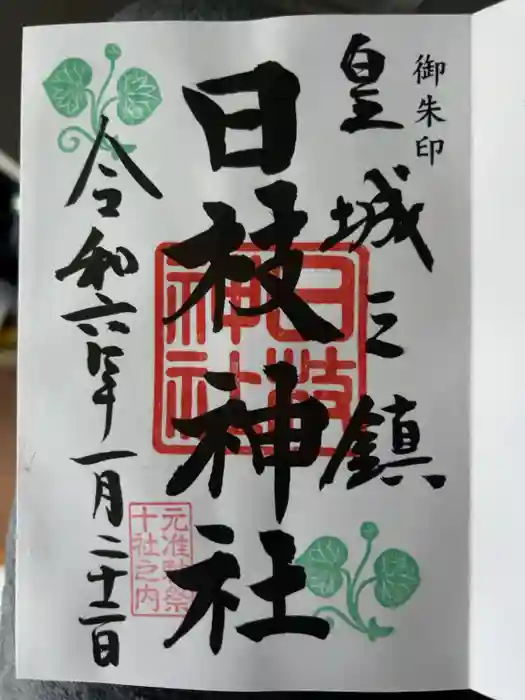 御朱印
皇城之鎮
日枝神社
日枝
神社
元准勅祭
十社之内
令和六年一月二十二日